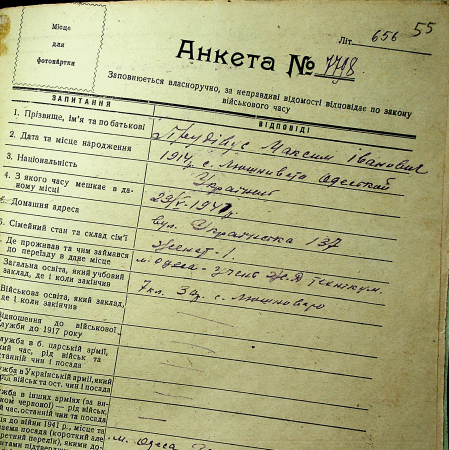 55
Літ. 656
Місце
для
фотокартки
Анкета № 7798.
Заповнюється власноручно, за неправдиві відомості відповідає по закону
військового часу
ЗАПИТАННЯ
ВІДПОВІДІ
1. Прізвище, ім'я та по батькові
Максим Іванович
2. Дата та місце народження
1914 р. с.
3. Національність
Українець
4. З якого часу мешкає в да-
ному місці
Домашня адреса
вул. 137
5. Сімейний стан та склад сім'ї
Женат - 1.
Де проживав та чим займався
до переїзду в дане місце
м. Одеса - учень технікум.
Загальна освіта, який учбовий
заклад, де і коли закінчив
7 кл. с.
Військова освіта, який заклад,
де і коли закінчив
Відношення до військової
служби до 1917 року
служба в б. царській армії,
який час, рід військ та
останній чин і посада
служба в Українській армії, який
час, рід військ та ост. чин і посада
служба в інших арміях (за ви-
нятком червоної) — рід військ,
час, останній чин та посада
до 1941 р., місце та
посада (короткий але
перелік), якими до-
підтвердити
м. Одеса